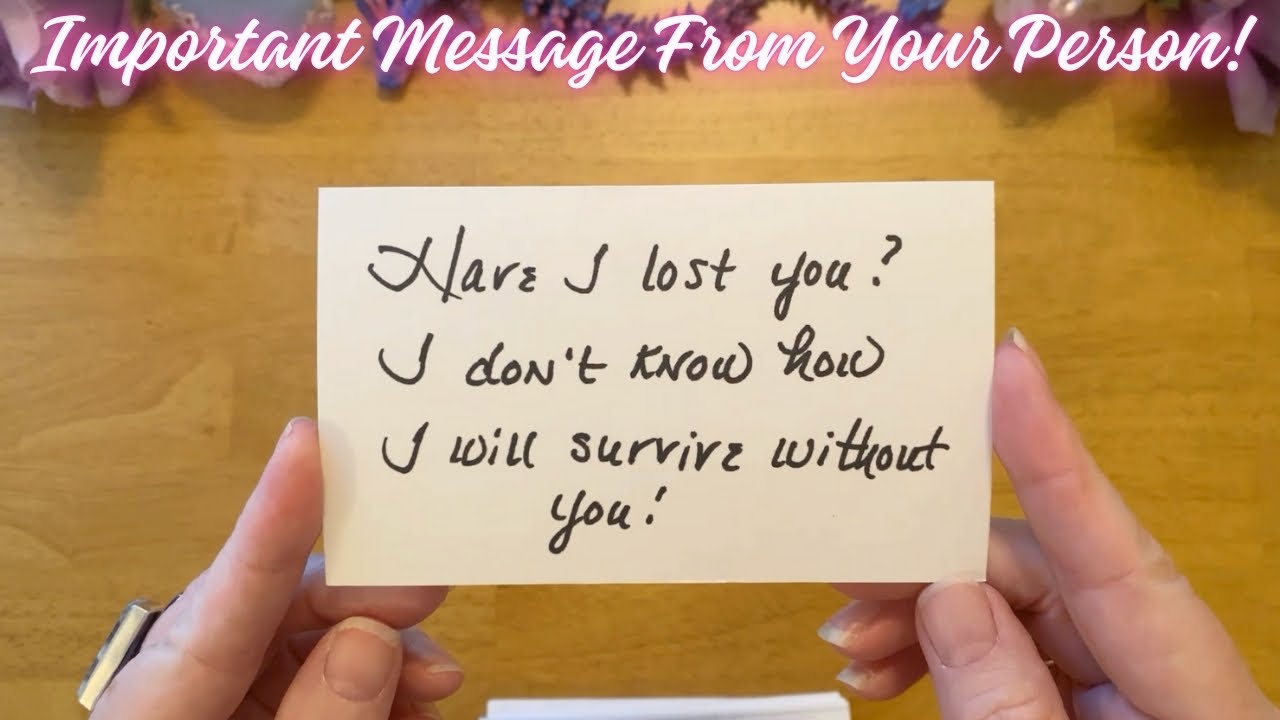 Important Message From Your Person!
Have I lost you?
I don't know how
I will survive without
you!